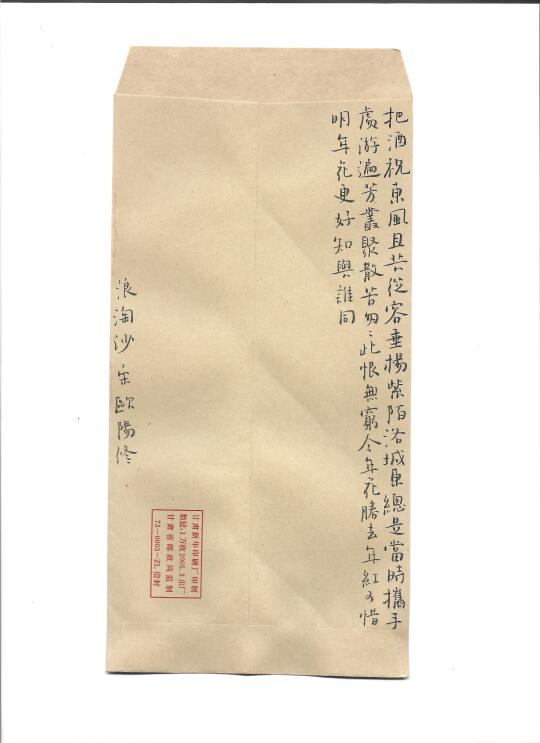 把酒祝東風且共從容垂楊紫陌洛城東總是當時攜手
處游遍芳叢聚散苦匆〻此恨無窮今年花勝去年紅可惜
明年花更好知與誰同
浪淘沙 宋歐陽修
甘肃新华印刷厂印制
数量:1万枚2005.3出厂
甘肃省邮政局监制
73-0003-ZL信封